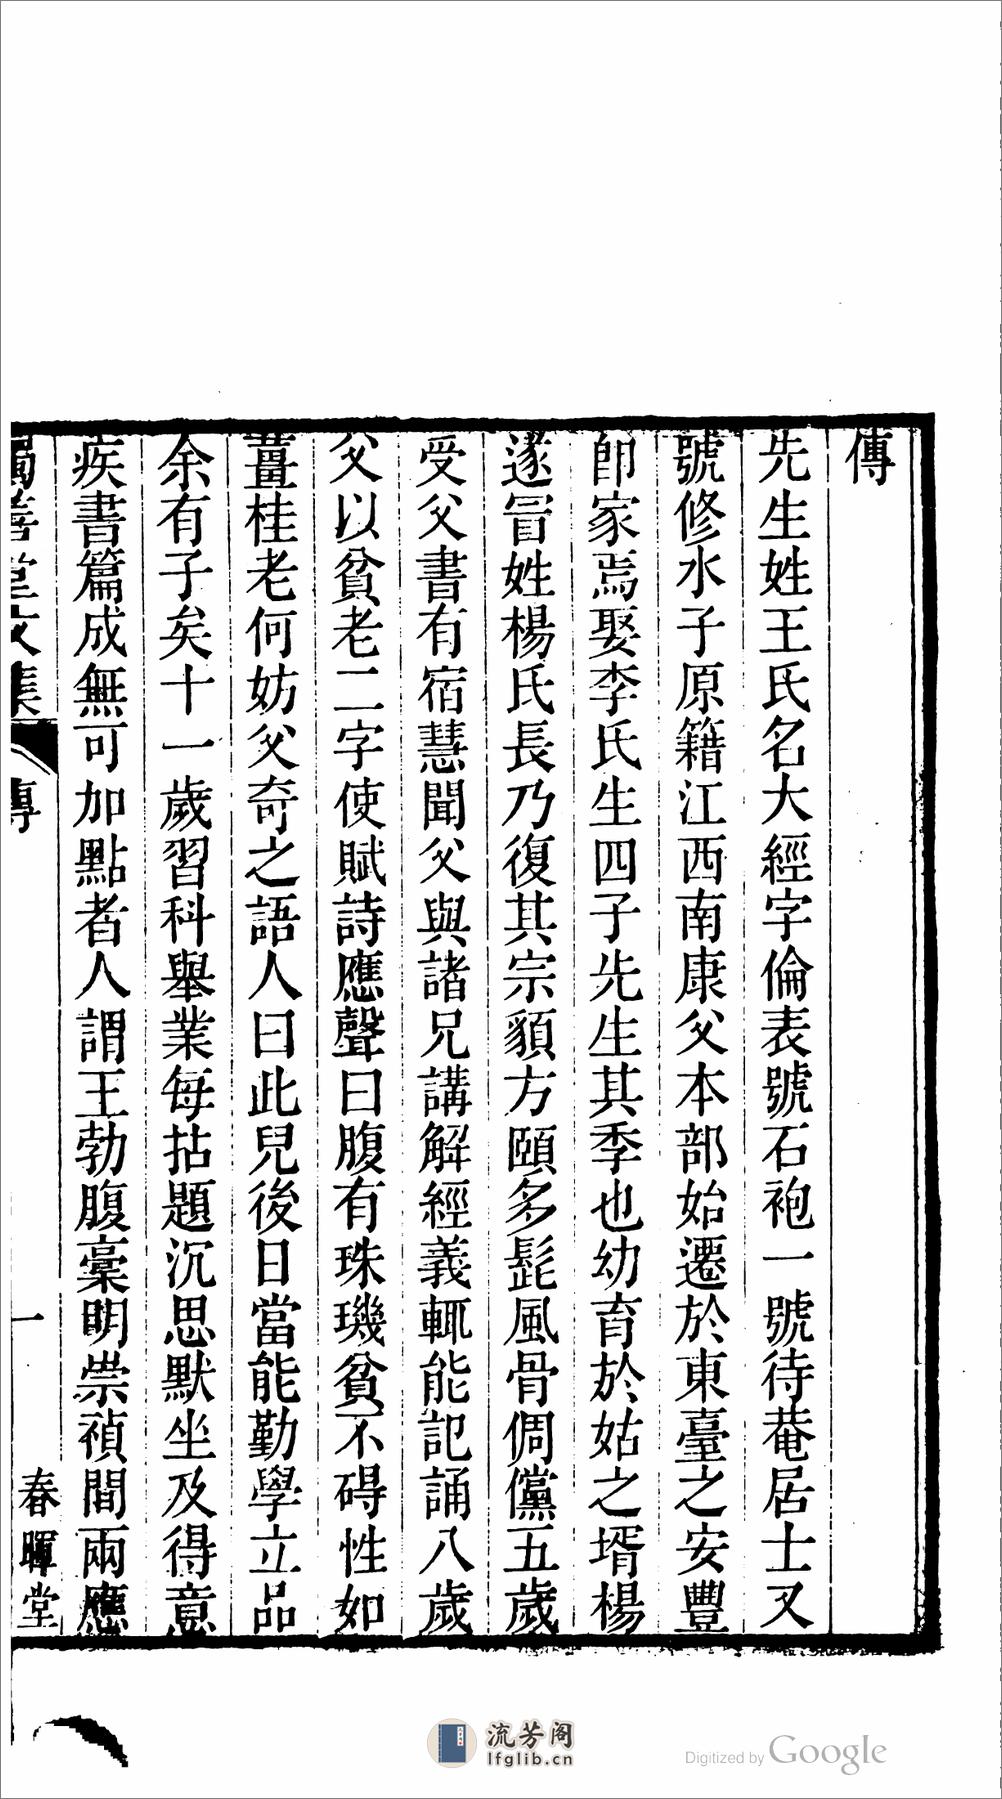 傳
先生姓王氏名大經字倫表號石袍一號待菴居士又
號修水子原籍江西南康父本部始遷於東臺之安豐
卽家焉娶李氏生四子先生其季也幼育於姑之壻楊
遂冒姓楊氏長乃復其宗貌方頤多髭風骨倜儻五歲
受父書有宿慧聞父與諸兄講解經義輒能記誦八歲
父以貧老二字使賦詩應聲曰腹有珠璣貧不碍性如
薑桂老何妨父奇之語人曰此兒後日當能勤學立品
余有子矣十一歲習科舉業每拈題沉思默坐及得意
疾書篇成無可加點者人謂王勃腹稾明崇禎間兩應
獨善堂文集 傳 一 春暉堂
流芳阁
lfglib.cn
Digitized by Google